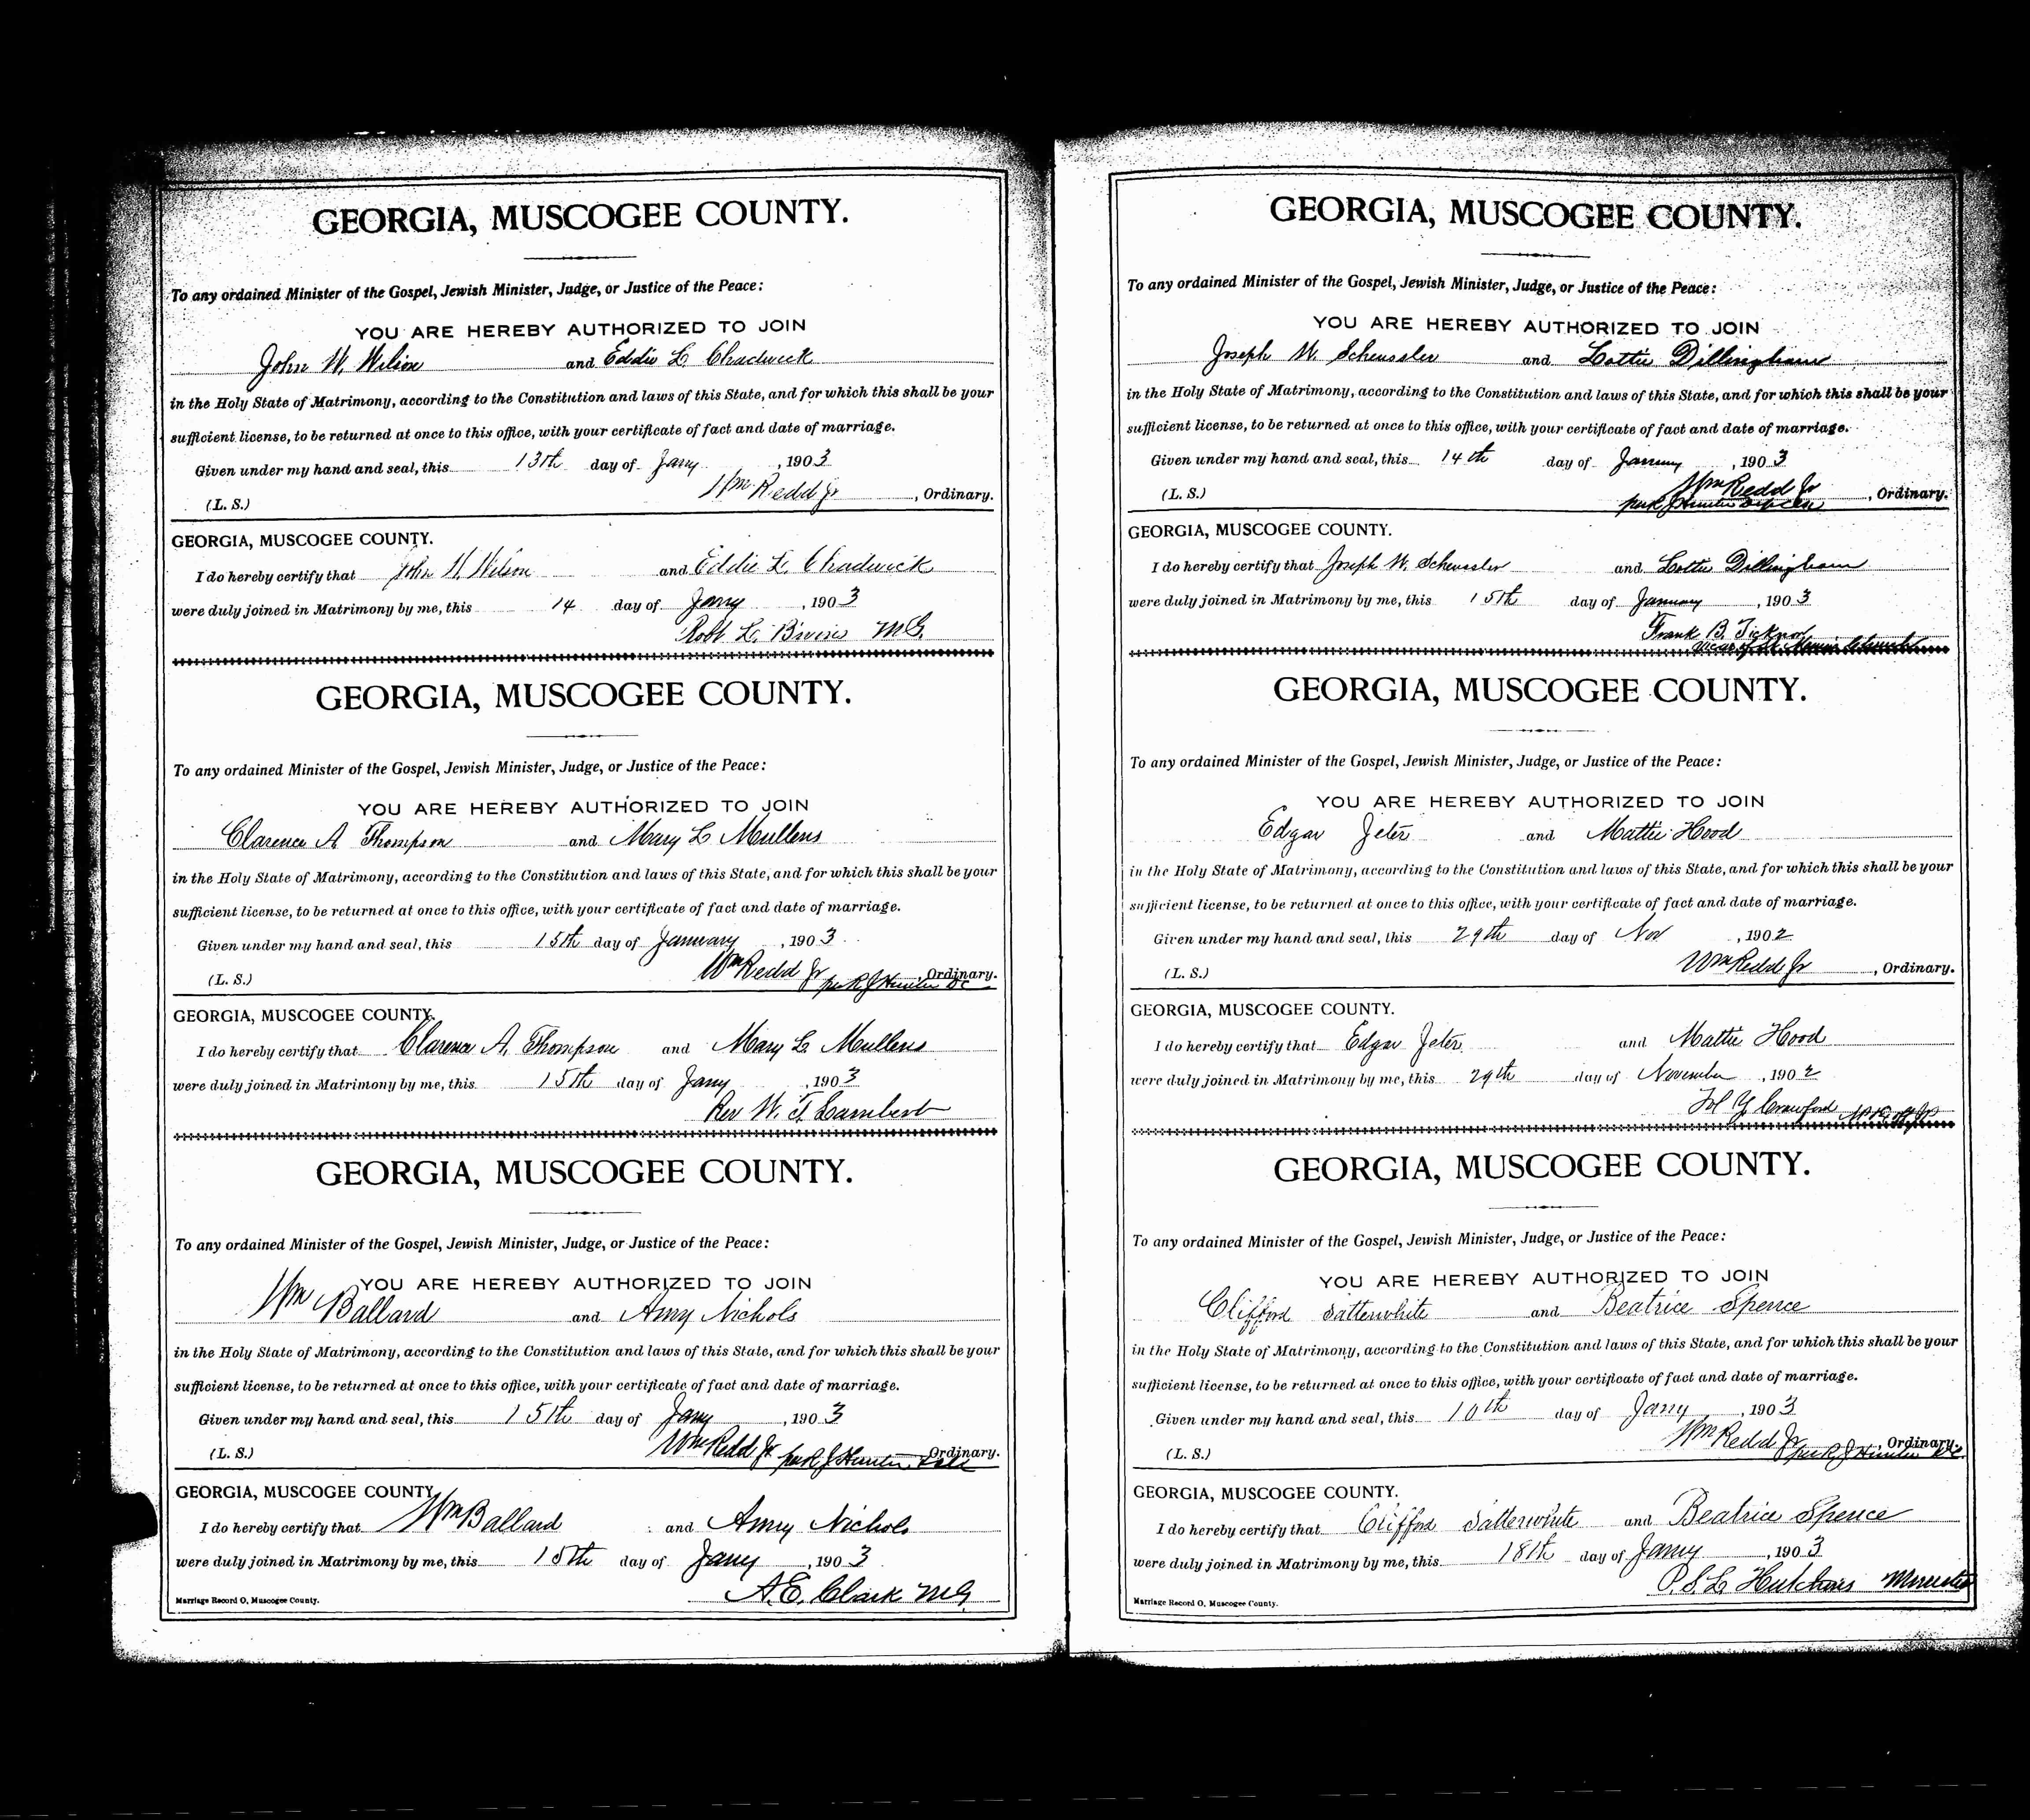 GEORGIA, MUSCOGEE COUNTY.
To any ordained Minister of the Gospel, Jewish Minister, Judge, or Justice of the Peace:
YOU ARE HEREBY AUTHORIZED TO JOIN
John W. Wilson and Eddie L Chadwick
in the Holy State of Matrimony, according to the Constitution and laws of this State, and for which this shall be your
sufficient license, to be returned at once to this office, with your certificate of fact and date of marriage.
Given under my hand and seal, this 13th day of Jany, 1903
(L. S.) Wm Redd Jr, Ordinary.
GEORGIA, MUSCOGEE COUNTY.
I do hereby certify that John W. Wilson and Eddie L. Chadwick
were duly joined in Matrimony by me, this 14 day of Jany, 1903
Robt L. Bivins MG.
GEORGIA, MUSCOGEE COUNTY.
To any ordained Minister of the Gospel, Jewish Minister, Judge, or Justice of the Peace:
YOU ARE HEREBY AUTHORIZED TO JOIN
Clarence A Thompson and Mary L Mullens
in the Holy State of Matrimony, according to the Constitution and laws of this State, and for which this shall be your
sufficient license, to be returned at once to this office, with your certificate of fact and date of marriage.
Given under my hand and seal, this 15th day of January, 1903
(L. S.) Wm Redd Jr per R J Hunter DC, Ordinary.
GEORGIA, MUSCOGEE COUNTY.
I do hereby certify that Clarence A. Thompson and Mary L. Mullens
were duly joined in Matrimony by me, this 15th day of Jany, 1903
Rev W. T. Lambert
GEORGIA, MUSCOGEE COUNTY.
To any ordained Minister of the Gospel, Jewish Minister, Judge, or Justice of the Peace:
YOU ARE HEREBY AUTHORIZED TO JOIN
Wm Ballard and Amy Nichols
in the Holy State of Matrimony, according to the Constitution and laws of this State, and for which this shall be your
sufficient license, to be returned at once to this office, with your certificate of fact and date of marriage.
Given under my hand and seal, this 15th day of Jany, 1903
(L. S.) Wm Redd Jr per R J Hunter, Ordinary.
GEORGIA, MUSCOGEE COUNTY.
I do hereby certify that Wm Ballard and Amy Nichols
were duly joined in Matrimony by me, this 15th day of Jany, 1903
A. E. Clark MG
Marriage Record O, Muscogee County.
GEORGIA, MUSCOGEE COUNTY.
To any ordained Minister of the Gospel, Jewish Minister, Judge, or Justice of the Peace:
YOU ARE HEREBY AUTHORIZED TO JOIN
Joseph W. Scheussler and Lottie Dillingham
in the Holy State of Matrimony, according to the Constitution and laws of this State, and for which this shall be your
sufficient license, to be returned at once to this office, with your certificate of fact and date of marriage.
Given under my hand and seal, this 14th day of January, 1903
(L. S.) Wm Redd Jr, Ordinary.
per R J Hunter
GEORGIA, MUSCOGEE COUNTY.
I do hereby certify that Joseph W. Scheussler and Lottie Dillingham
were duly joined in Matrimony by me, this 15th day of January, 1903
Frank B. Ticknor
GEORGIA, MUSCOGEE COUNTY.
To any ordained Minister of the Gospel, Jewish Minister, Judge, or Justice of the Peace:
YOU ARE HEREBY AUTHORIZED TO JOIN
Edgar Jeter and Mattie Hood
in the Holy State of Matrimony, according to the Constitution and laws of this State, and for which this shall be your
sufficient license, to be returned at once to this office, with your certificate of fact and date of marriage.
Given under my hand and seal, this 29th day of Nov, 1902
(L. S.) Wm Redd Jr, Ordinary.
GEORGIA, MUSCOGEE COUNTY.
I do hereby certify that Edgar Jeter and Mattie Hood
were duly joined in Matrimony by me, this 29th day of November, 1902
Y Crawford
GEORGIA, MUSCOGEE COUNTY.
To any ordained Minister of the Gospel, Jewish Minister, Judge, or Justice of the Peace:
YOU ARE HEREBY AUTHORIZED TO JOIN
Clifford Satterwhite and Beatrice Spence
in the Holy State of Matrimony, according to the Constitution and laws of this State, and for which this shall be your
sufficient license, to be returned at once to this office, with your certificate of fact and date of marriage.
Given under my hand and seal, this 10th day of Jany, 1903
(L. S.) Wm Redd Jr per R J Hunter DC, Ordinary.
GEORGIA, MUSCOGEE COUNTY.
I do hereby certify that Clifford Satterwhite and Beatrice Spence
were duly joined in Matrimony by me, this 18th day of Jany, 1903
P. S. L. Hutchins Minister
Marriage Record O, Muscogee County.